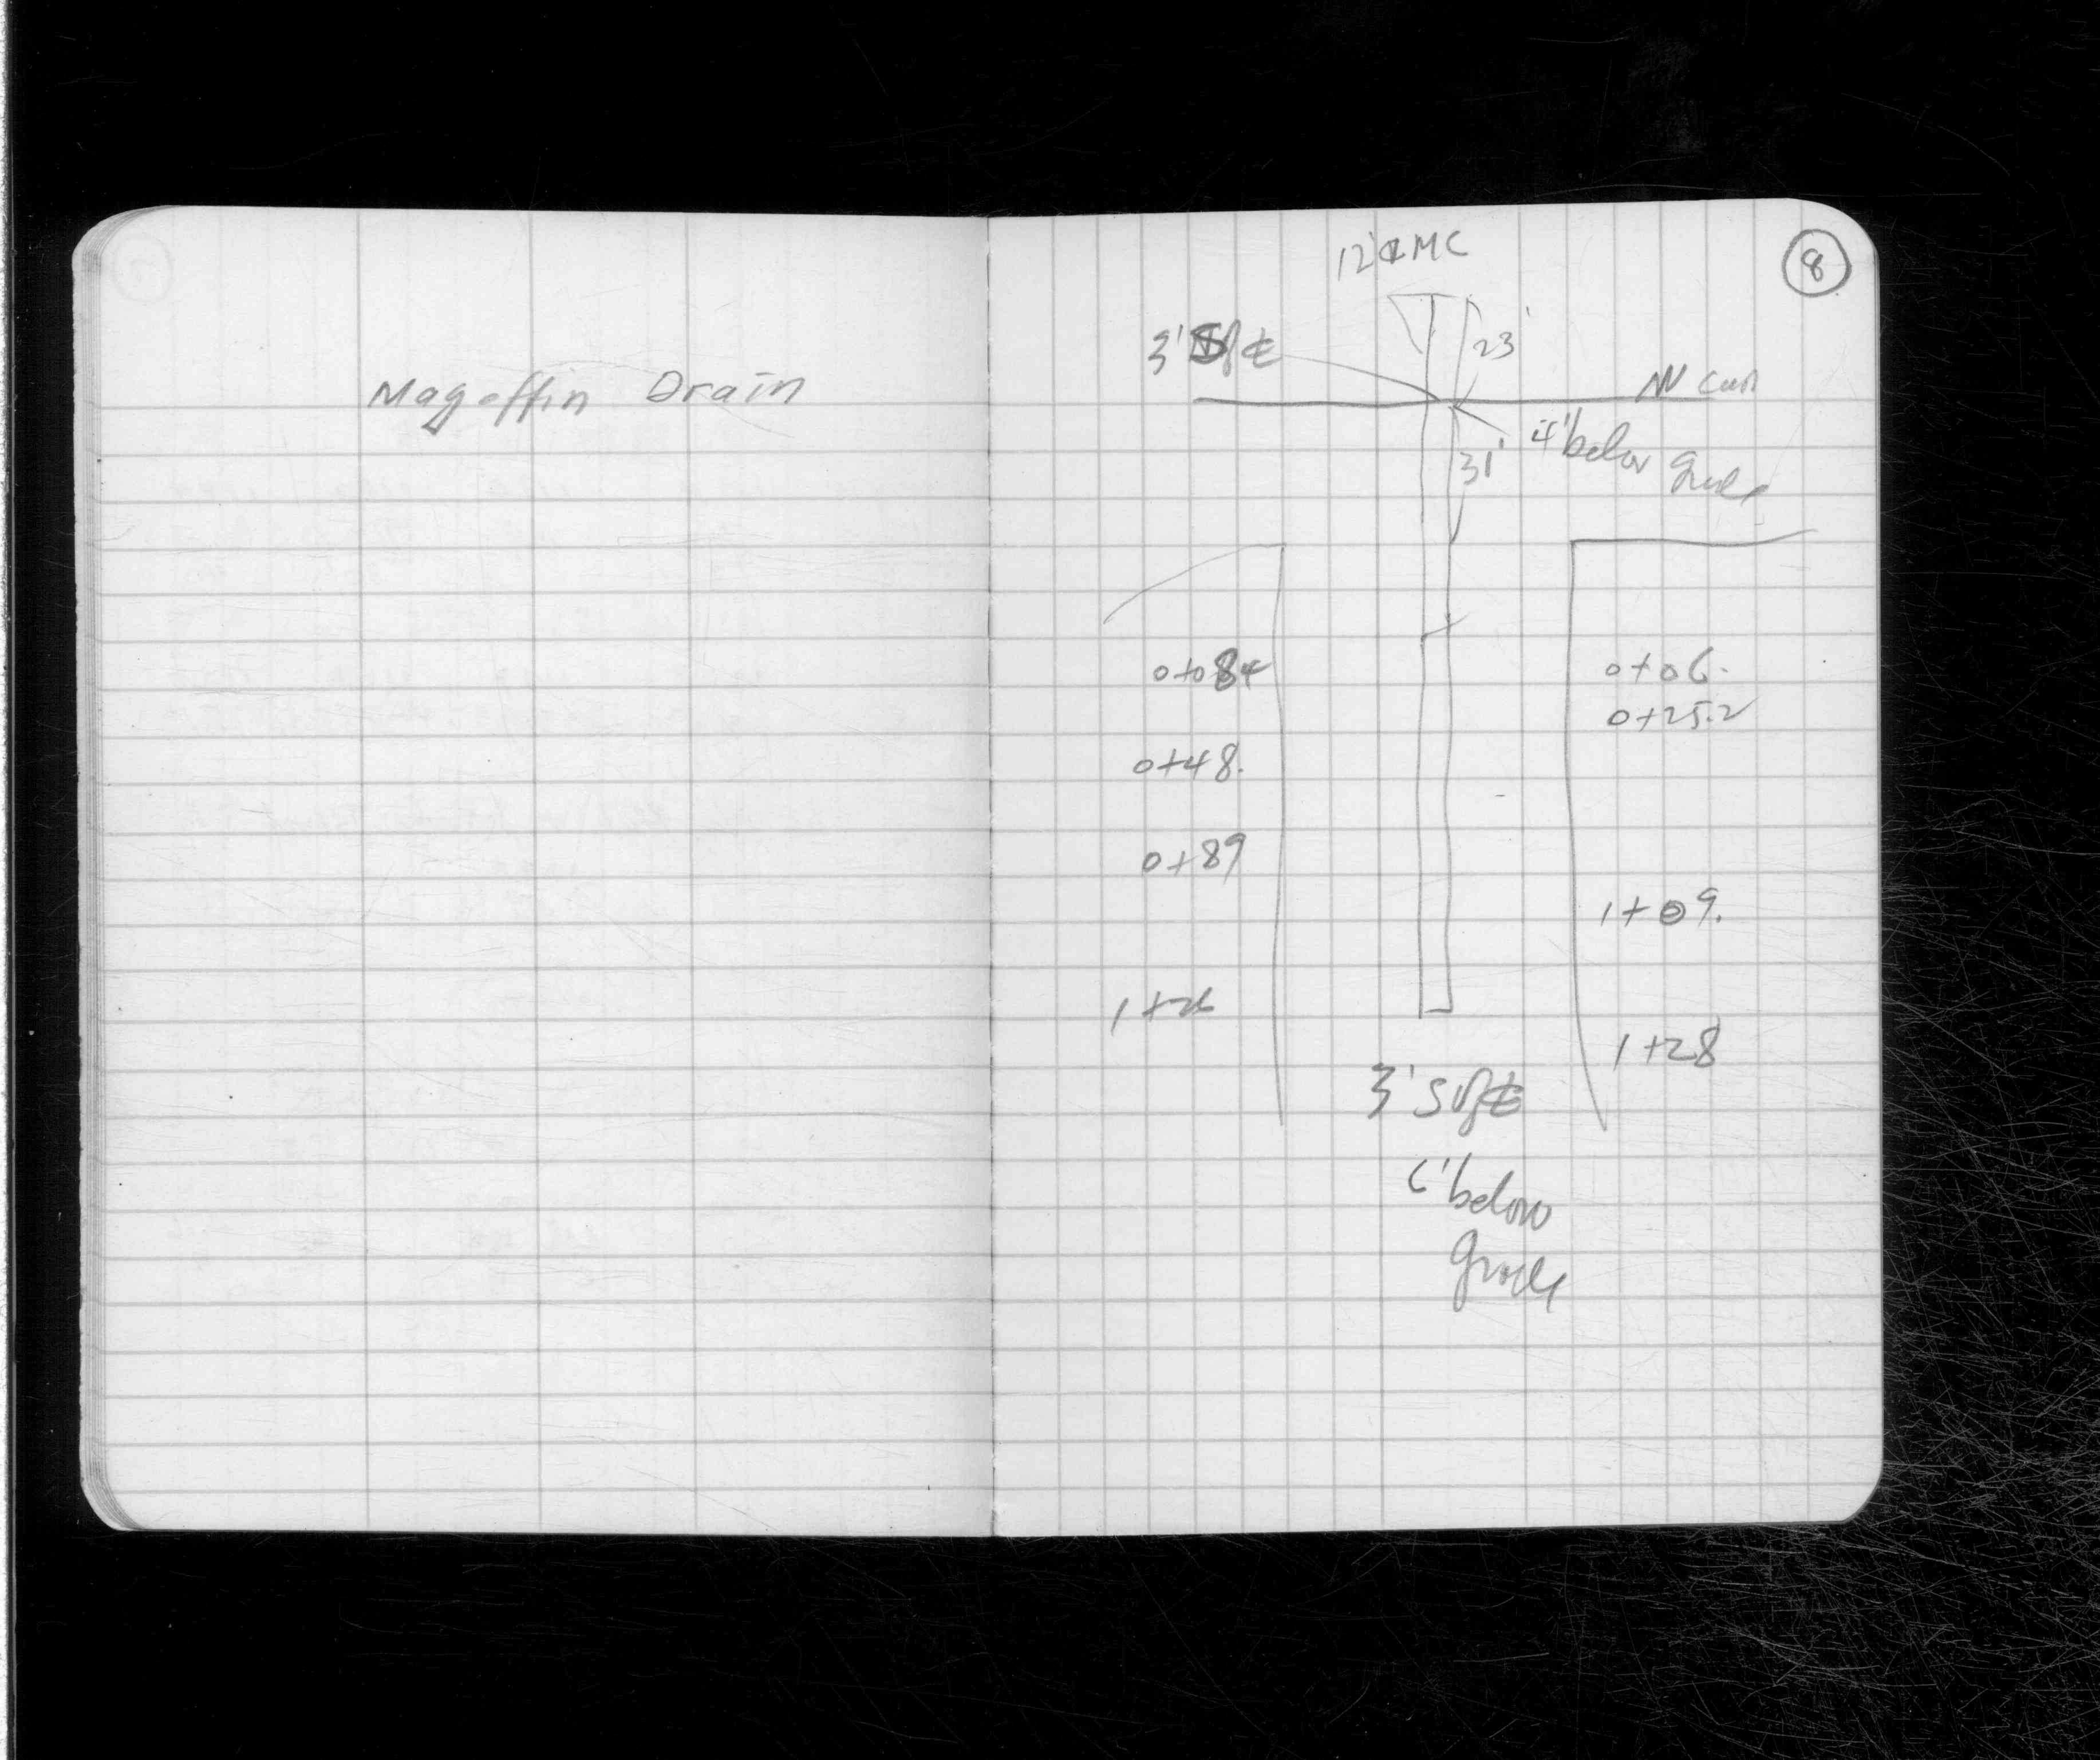 Magoffin Drain
8
12" CMC
3' S of ℄
23'
4' below grade
31'
0+084
0+06.
0+25.2
0+48.
0+89
1+09.
1+26
1+28
3' S of ℄
6' below
grade